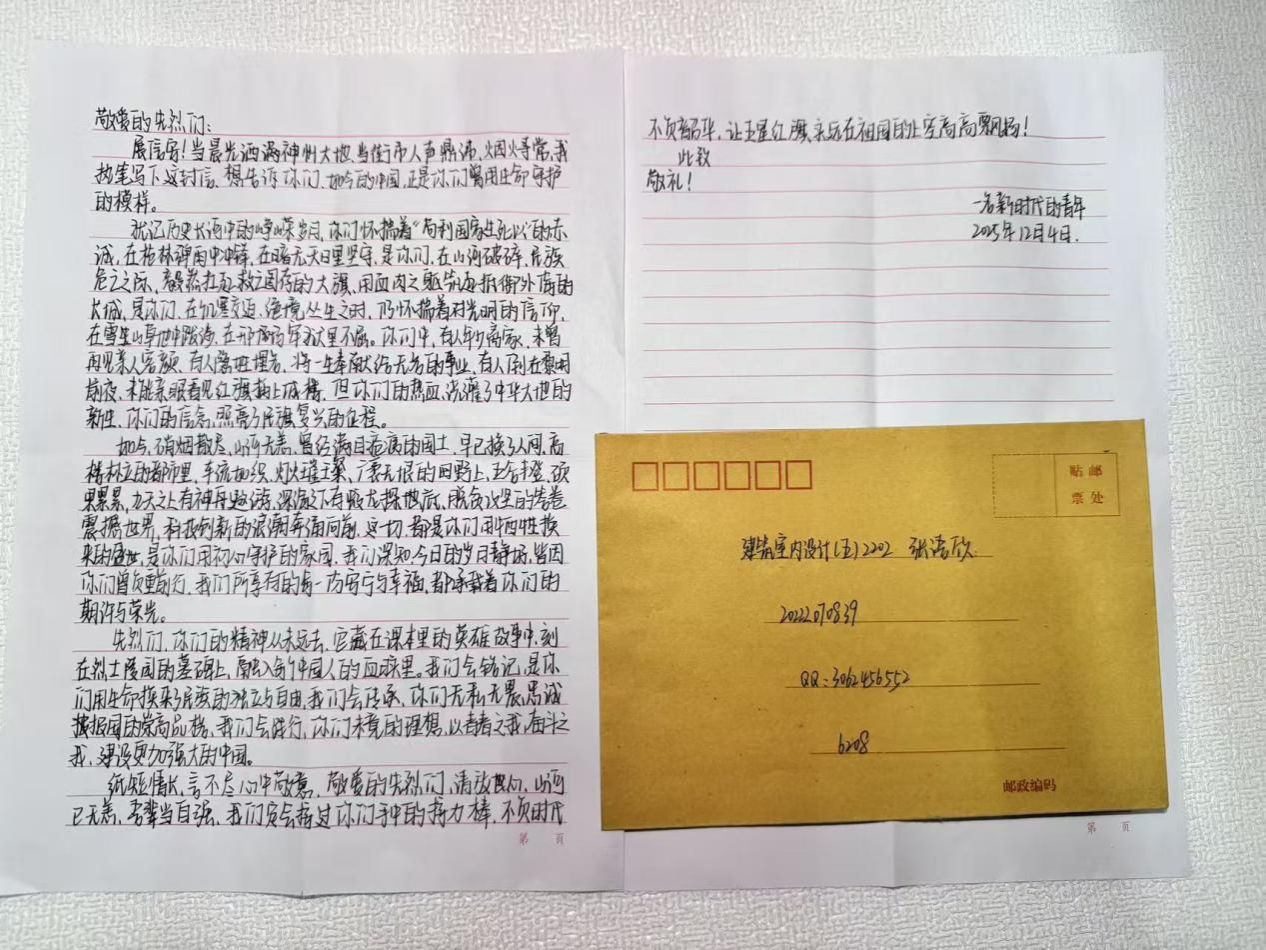 敬爱的先烈们：
展信安！当晨光洒满神州大地、当街市人声鼎沸、烟火寻常，我
执笔写下这封信、想告诉你们、如今的中国，正是你们曾用生命守护
的模样。
犹记历史长河中的峥嵘岁月、你们怀揣着“苟利国家生死以”的赤
诚，在枪林弹雨中冲锋，在暗无天日里坚守，是你们，在山河破碎、民族
危亡之际，毅然扛起救亡图存的大旗，用血肉之躯筑起抵御外侮的
长城，是你们、在饥寒交迫、绝境丛生之时，仍怀揣着对光明的信仰，
在雪里山草地中跋涉，在里不屈。你们中，有人年少离家，未曾
再见亲人容颜、有人隐姓埋名、将一生奉献给无名的事业，有人倒在黎明
前夜，未能亲眼看见红旗插上城楼，但你们的热血，浇灌了中华大地的
新生、你们的信念，照亮了民族复兴的征程。
如今，硝烟散尽、山河无恙，曾经满目疮痍的国土，早已换了人间，高
楼林立的都市里，车流如织，灯火璀璨，广袤无垠的田野上，五谷丰登，硕
果累累，九天之上有神舟遨游，深海之下有蛟龙探地底，脱贫攻坚的答卷
震撼世界，科技创新的浪潮奔涌向前，这一切，都是你们用牺牲换
来的盛世，是你们用初心守护的家园。我们深知今日的岁月静好，皆因
你们曾负重前行，我们所享有的每一份安宁与幸福，都承载着你们的
期许与荣光。
先烈们，你们的精神从未远去，它藏在课本里的英雄故事中，刻
在烈士陵园的墓碑上，融入每个中国人的血脉里。我们会铭记，是你
们用生命换来了民族的独立与自由，我们会传承、你们无私无畏、忠诚
报国的崇高品格，我们会践行，你们未竟的理想，以青春之我，奋斗之
我，建设更加强大的中国。
纸短情长，言不尽心中敬意，敬爱的先烈们，请放心，山河
已无恙，吾辈当自强，我们定会接过你们手中的接力棒，不负时代
第 页
不负韶华，让五星红旗永远在祖国的上空高高飘扬！
此致
敬礼！
一名新时代的青年
2025年12月4日.
贴 邮
票 处
建筑室内设计(五)2202 张洁欣
2022070839
QQ：3062456552
6208
邮政编码
第 页